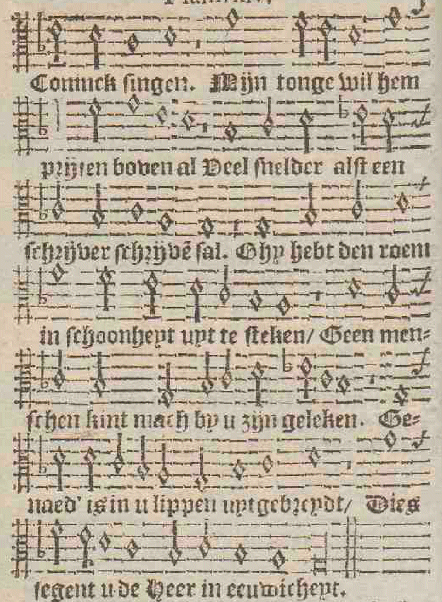 Coninck singen. Mijn tonge wil hem
prijsen boven al Veel snelder alst een
schrijver schrijvē sal. Ghy hebt den roem
in schoonheyt uyt te steken/ Geen men-
schen kint mach by u zijn geleken. Ge-
naed' is in u lippen uytgebreydt/ Dies
segent u de Heer in eeuwicheyt.